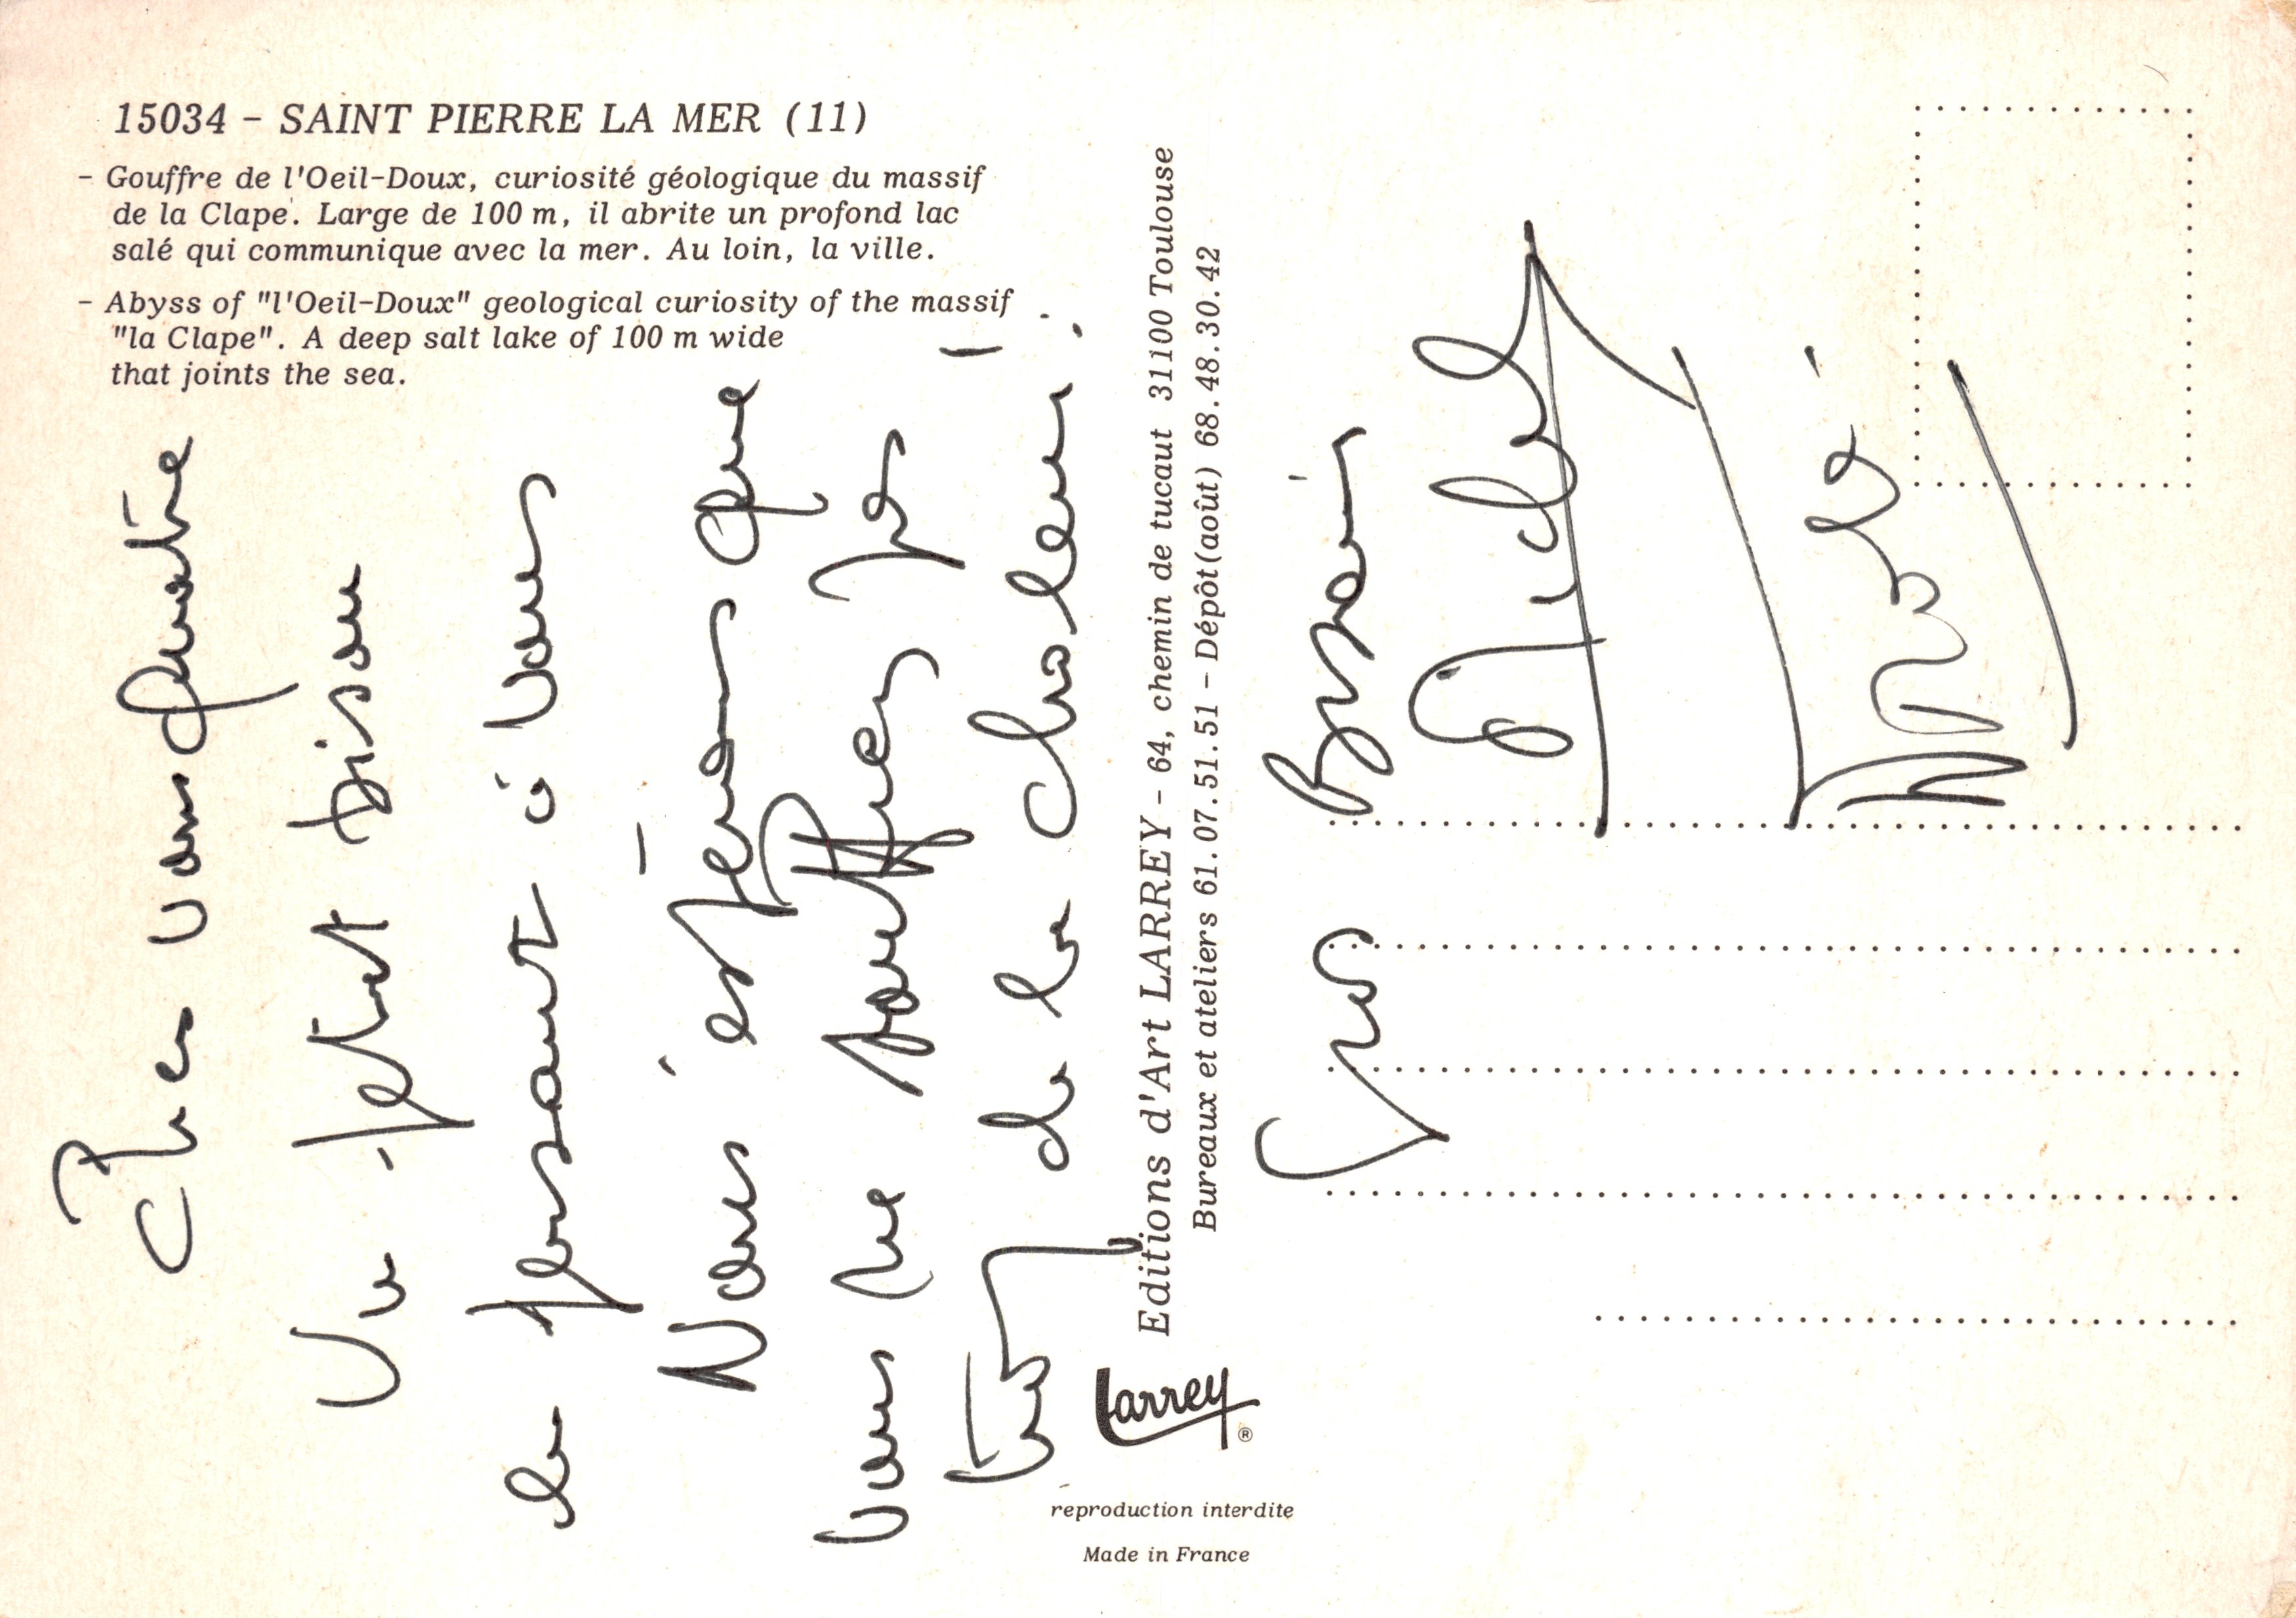 15034 - SAINT PIERRE LA MER (11)
- Gouffre de l'Oeil-Doux, curiosité géologique du massif
de la Clape. Large de 100 m, il abrite un profond lac
salé qui communique avec la mer. Au loin, la ville.
- Abyss of "l'Oeil-Doux" geological curiosity of the massif
"la Clape". A deep salt lake of 100 m wide
that joints the sea.
Chers vous quatre
Un petit bisou
en pensant à vous
Nous espérons que
vous ne souffrez pas
trop de la chaleur !
Editions d'Art LARREY - 64, chemin de tucaut 31100 Toulouse
Bureaux et ateliers 61.07.51.51 - Dépôt(août) 68.48.30.42
Larrey ®
reproduction interdite
Made in France
Gros Bisous
Michel